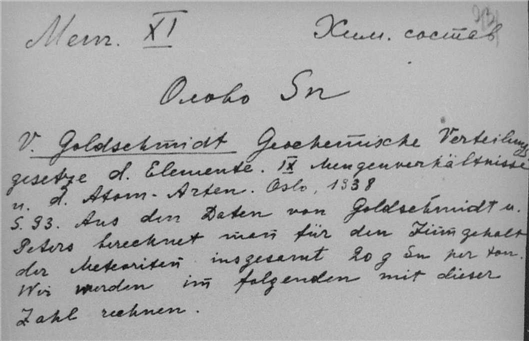 Мет. XI
Хим. состав
Олово Sn
V. Goldschmidt Geochemische Verteilungs
gesetze d. Elemente. IX Mengenverhältnisse
u. d. Atom-Arten. Oslo, 1938
S. 93. Aus den Daten von Goldschmidt u.
Peters berechnet man für den Zinngehalt
der Meteoriten insgesamt 20 g Sn per ton.
Wir werden im folgenden mit dieser
Zahl rechnen.